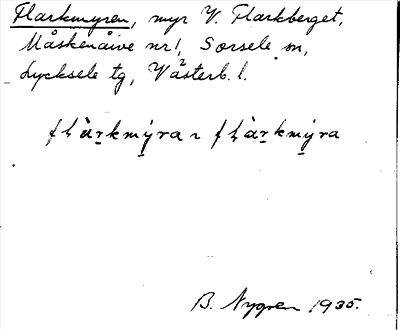 Flarkmyren, myr V. Flarkberget,
Måskenåive nr 1, Sorsele sn,
Lycksele tg, Västerb. l.
flὰr̠kmý̠ra ~ flὰr̠kmý̠ra
B. Nygren 1935.